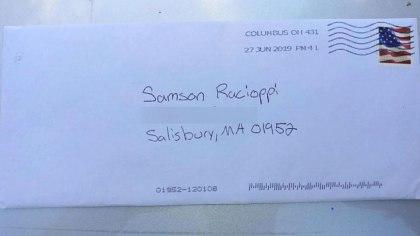 COLUMBUS OH 431
27 JUN 2019 PM 4 L
Samson Racioppi
Salisbury, MA 01952
01952-120108